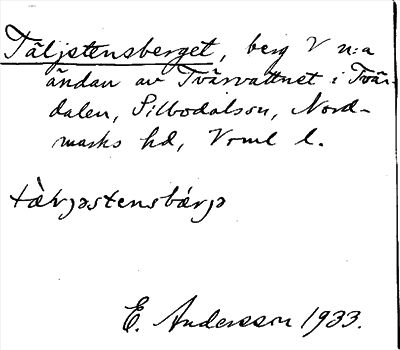 Täljstensberget, berg V n:a
ändan av Tvärvattnet i Tvär-
dalen, Silbodalssn, Nord-
marks hd, Vrml l.
tàl̨jəstensbárjə
E. Andersson 1933.